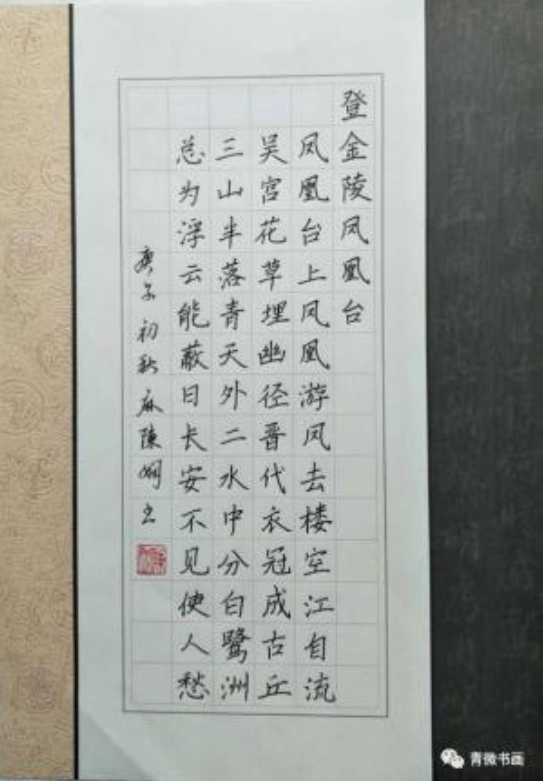 登金陵凤凰台
凤凰台上凤凰游凤去楼空江自流
吴宫花草埋幽径晋代衣冠成古丘
三山半落青天外二水中分白鹭洲
总为浮云能蔽日长安不见使人愁
初秋
青微书画